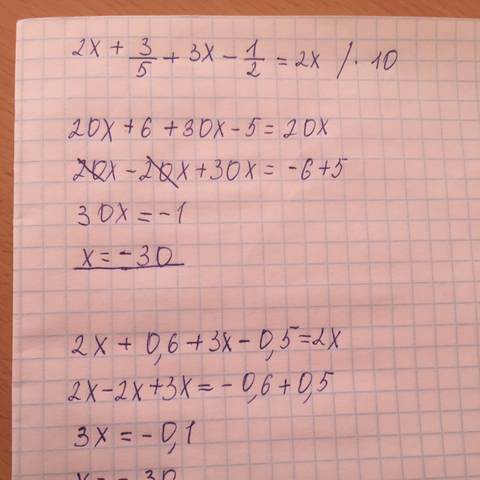 2x + 3/5 + 3x - 1/2 = 2x /· 10
20x + 6 + 30x - 5 = 20x
20x - 20x + 30x = -6 + 5
30x = -1
x = -30
2x + 0,6 + 3x - 0,5 = 2x
2x - 2x + 3x = -0,6 + 0,5
3x = -0,1
x = -30